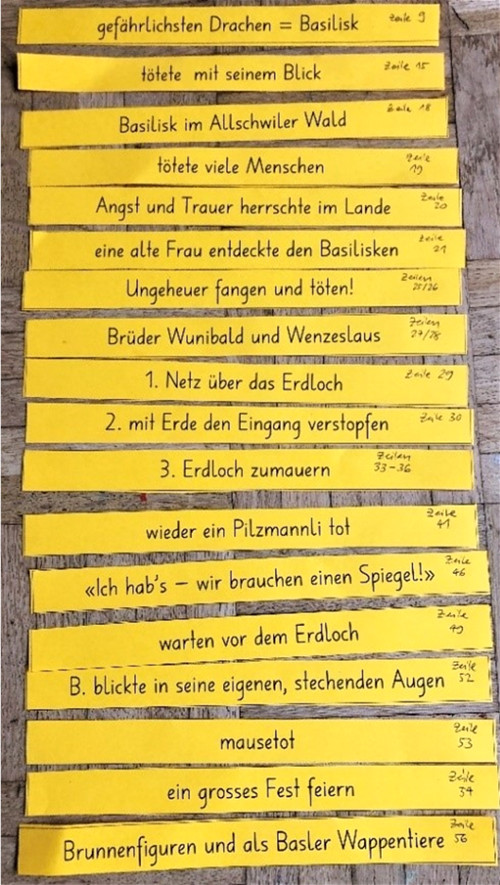 gefährlichsten Drachen = Basilisk Zeile 9
tötete mit seinem Blick Zeile 15
Basilisk im Allschwiler Wald Zeile 18
tötete viele Menschen Zeile 19
Angst und Trauer herrschte im Lande Zeile 20
eine alte Frau entdeckte den Basilisken Zeile 21
Ungeheuer fangen und töten! Zeilen 25/26
Brüder Wunibald und Wenzeslaus Zeilen 27/28
1. Netz über das Erdloch Zeile 29
2. mit Erde den Eingang verstopfen Zeile 30
3. Erdloch zumauern Zeilen 33-36
wieder ein Pilzmannli tot Zeile 41
«Ich hab's – wir brauchen einen Spiegel!» Zeile 46
warten vor dem Erdloch Zeile 49
B. blickte in seine eigenen, stechenden Augen Zeile 52
mausetot Zeile 53
ein grosses Fest feiern Zeile 54
Brunnenfiguren und als Basler Wappentiere Zeile 56